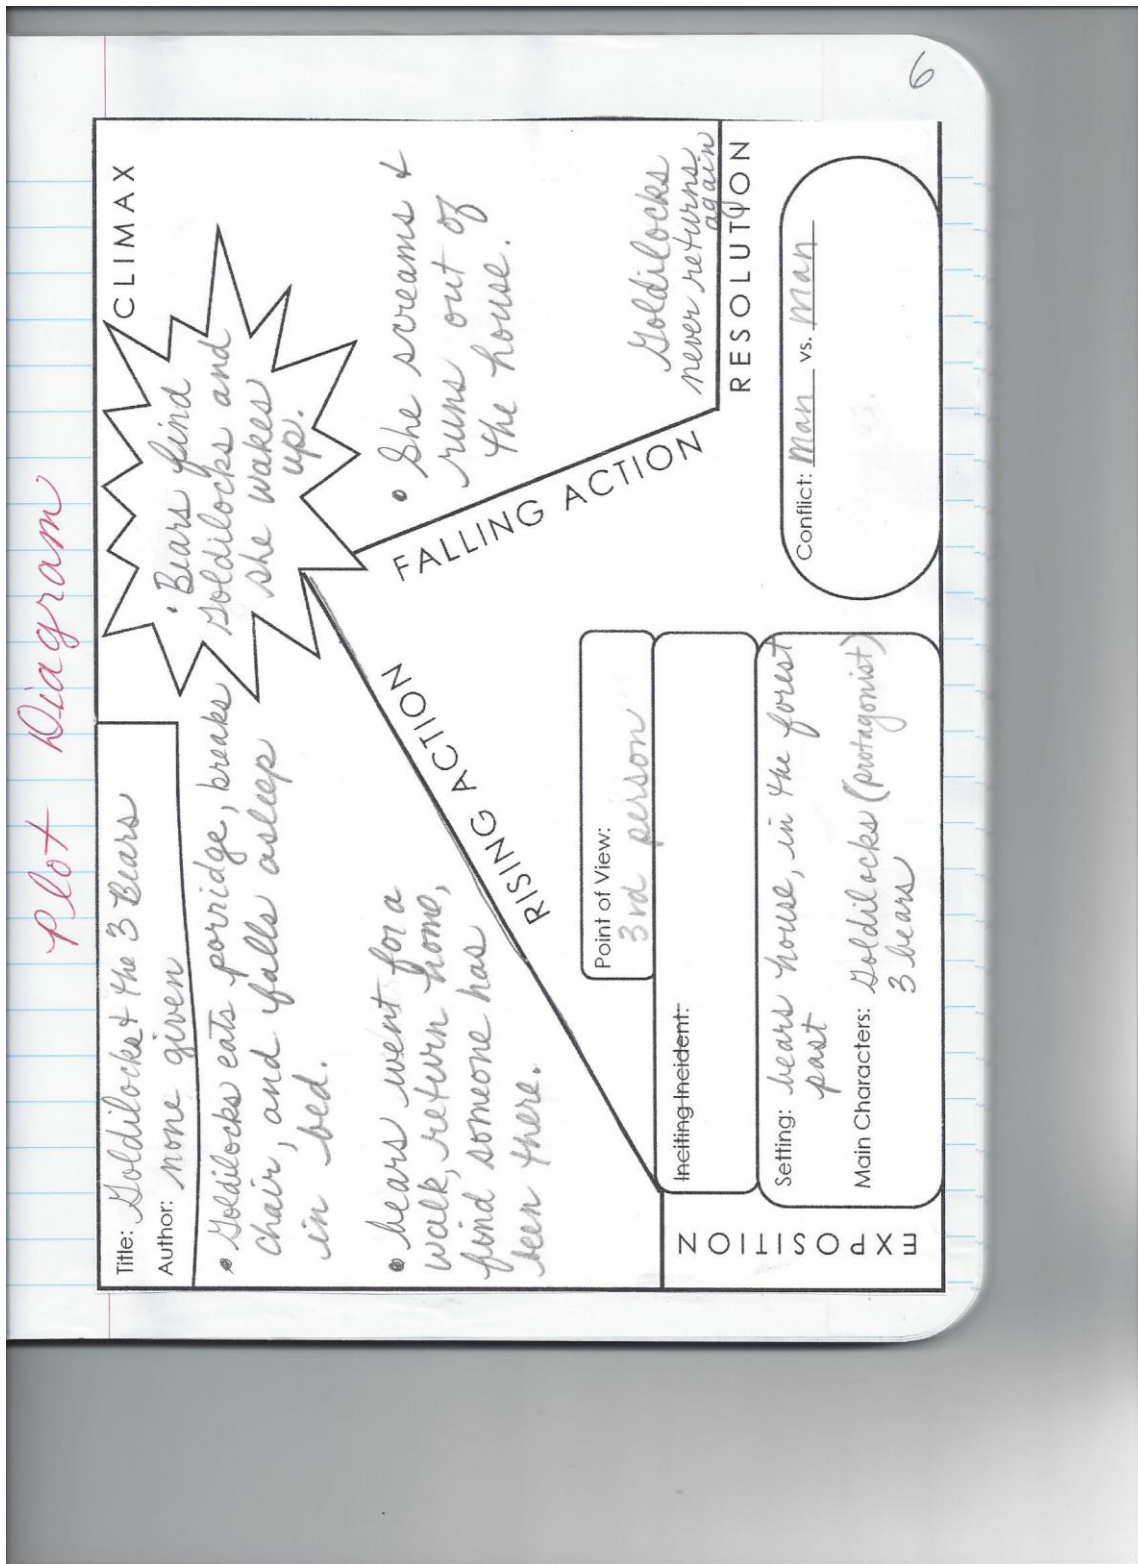 Plot Diagram
6
Title: Goldilocks & the 3 Bears
Author: none given
• Goldilocks eats porridge, breaks
chair, and falls asleep
in bed.
• bears went for a
walk, return home,
find someone has
been there.
RISING ACTION
CLIMAX
• Bears find
Goldilocks and
she wakes
up.
• She screams &
runs out of
the house.
FALLING ACTION
Goldilocks
never returns
again
RESOLUTION
Point of View:
3rd person
Inciting Incident:
Setting: bears house, in the forest
past
Main Characters: Goldilocks (protagonist)
3 bears
EXPOSITION
Conflict: Man vs. Man